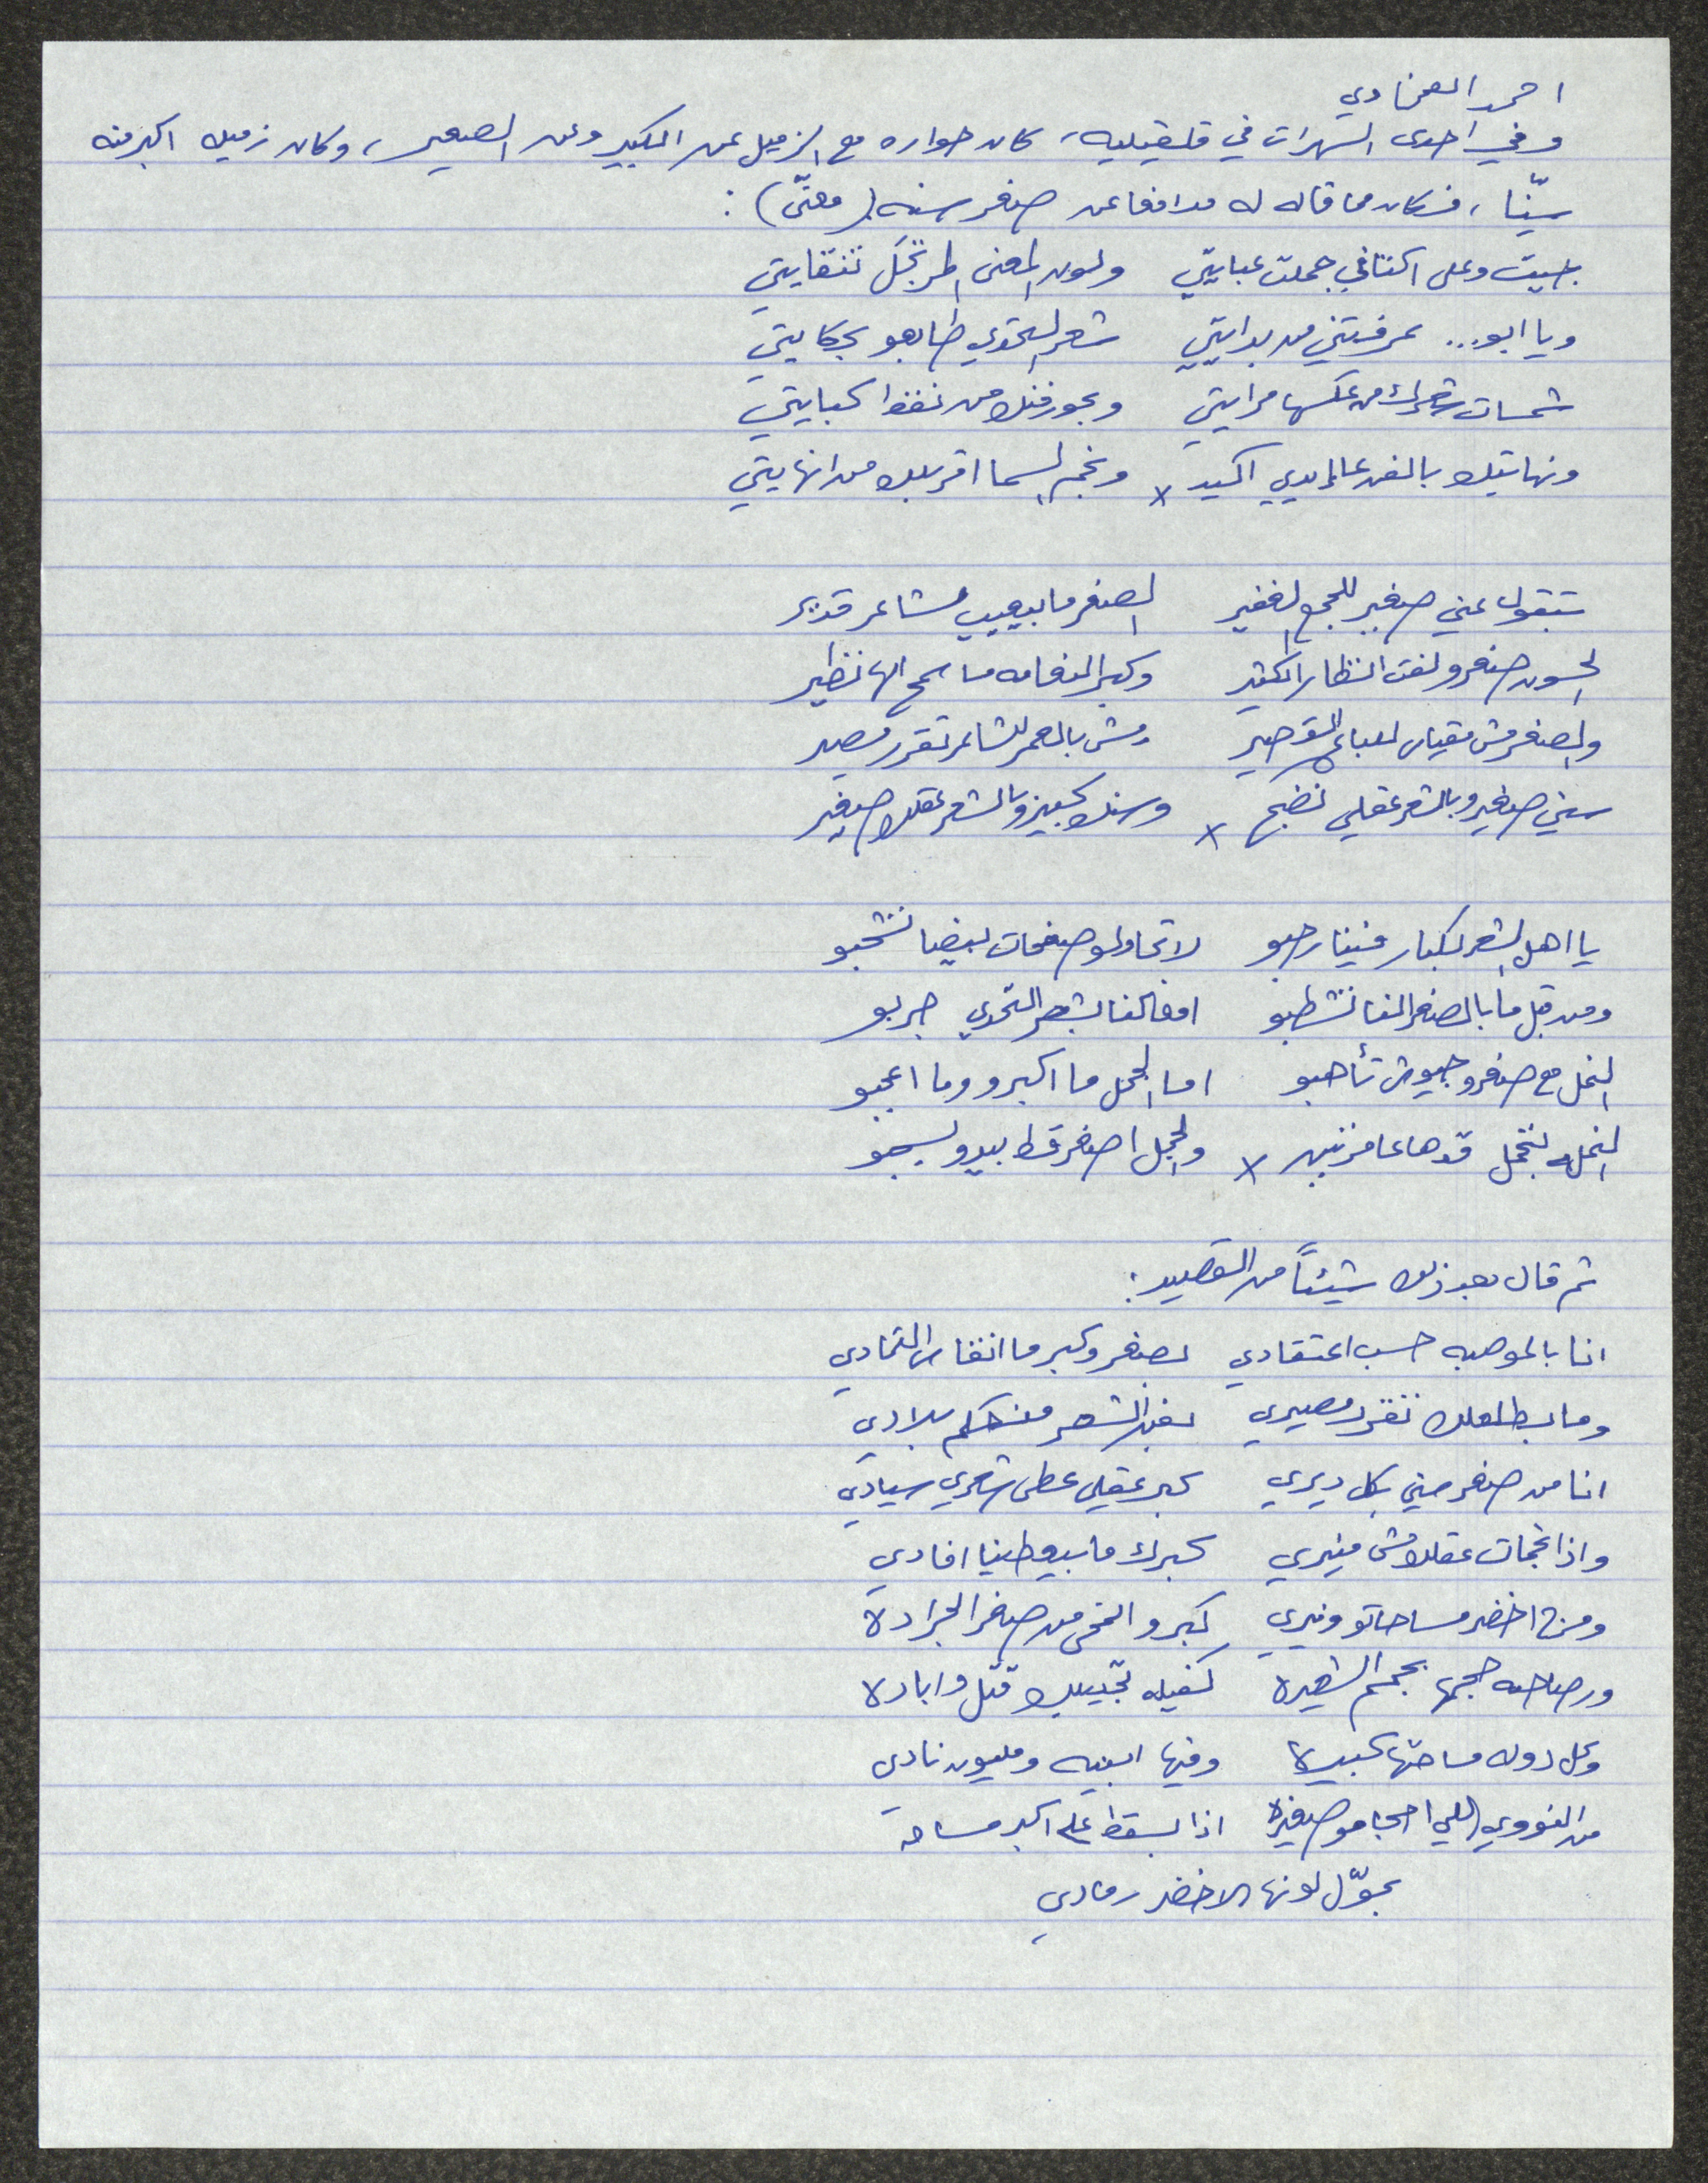 احمد العنادي
وفي احدى السهرات في قلقيليه، كان حواره مع الزميل عن الكبير وعن الصغير، وكان زميله اكبر منه
سنّا، فكان مما قاله له مدافعا عن صغر سنه (معنّى):
جيت وعلى اكتافي حملت عبايتي ولون المعنى المرتجل تنقايتي
ويا ابو... عرفتني من بدايتي شعر التحدي طابعو بحكايتي
شمسات شعرك من عكسها مرايتي وبحور فنك من نقط كبايتي
ونهايتك بالفن عا إيدي اكيد x ونجم السما اقربلك من انهايتي
بتقول عني صغير للجمع الغفير الصغر ما بيعيب شاعر قدير
الحسون صغرو لفت انظار الكثير وكبر النعامه ما سمح الها تطير
والصغر مش مقياس لباع القصير ومش بالعمر الشاعر تقرر مصير
سني صغير وبالشعر عقلي نضج x وسنك كبير وبالشعر عقلك صغير
يا اهل الشعر لكبار فينا رحبو لا تحاولو صفحات بيضا تشحبو
ومن قبل ما بالصغر النا تشطبو افعالنا بشعر التحدي جربو
النحل مع صغرو جيوش تأهبو اما الجمل ما اكبرو وما اعجبو
النحله بتحمل قدها عا مرتين x والجمل اصغر قط بيدو بيسحبو
ثم قال بعد ذلك شيئاً من القصيد:
انا بالموهبه حسب اعتقادي بصغر وكبر ما انقاس التمادي
وما بطلعلك تقرر مصيري بفن الشعر منحكم بلادي
انا من صغر سني بكل ديري كبر عقلي عطى شعري سيادي
واذا نجمات عقلك مش منيري كبرك ما بيعطينا افادي
ومن اخضر مساحاتو ونيري كبرو انمحى من صغر الجرادة
ورصاصه حجمها بحجم الشعيرة كفيله تجيبلك قتل وابادة
وكل دوله مساحتها كبيرة وفيها ابنيه ومليون نادي
من النووي اللي احجامو صغيرة اذا بسقط على اكبر مساحه
بحوّل لونها الاخضر رمادي